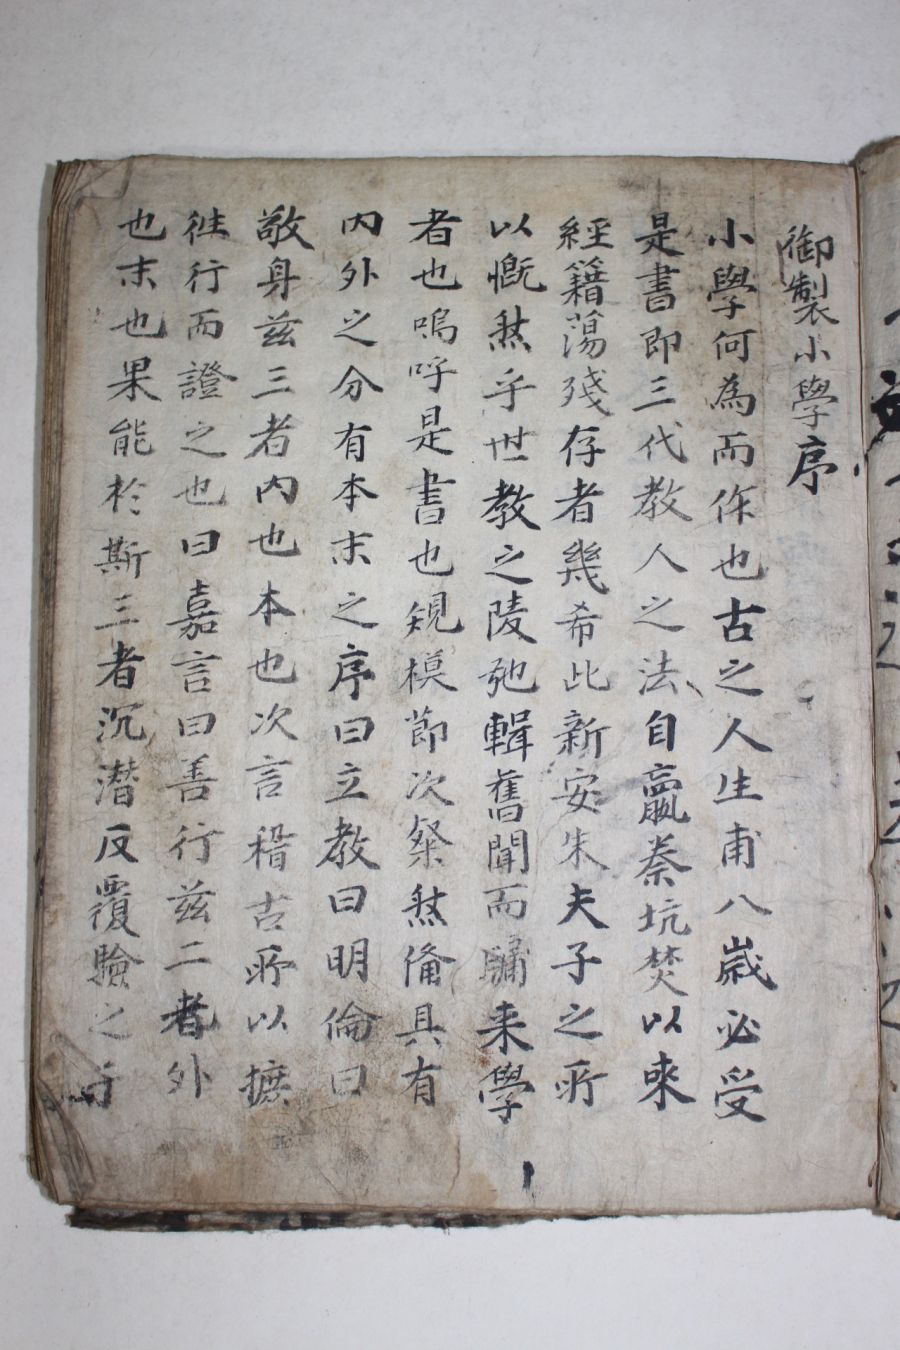 御製小學序
小學何為而作也古之人生甫八歲必受
是書即三代教人之法自嬴秦坑焚以來
經籍蕩殘存者幾希此新安朱夫子之所
以慨然乎世教之陵弛輯舊聞而牖來學
者也嗚呼是書也規模節次粲然備具有
内外之分有本末之序曰立教曰明倫曰
敬身玆三者内也本也次言稽古所以摭
徃行而證之也曰嘉言曰善行玆二者外
也末也果能於斯三者沉潜反覆驗之于